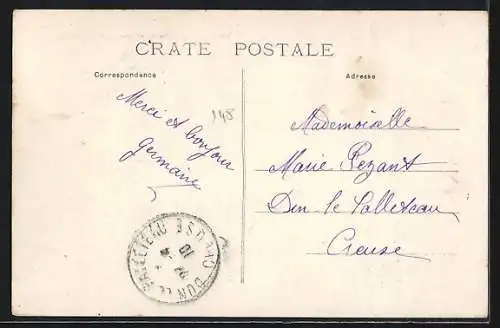 CRATE POSTALE
Correspondance
Adresse
148
Merci et bonjour
Germaine
Mademoiselle
Marie Pezant
Dun le Palleteau
Creuse
DUN LE PALLETEAU CREUSE